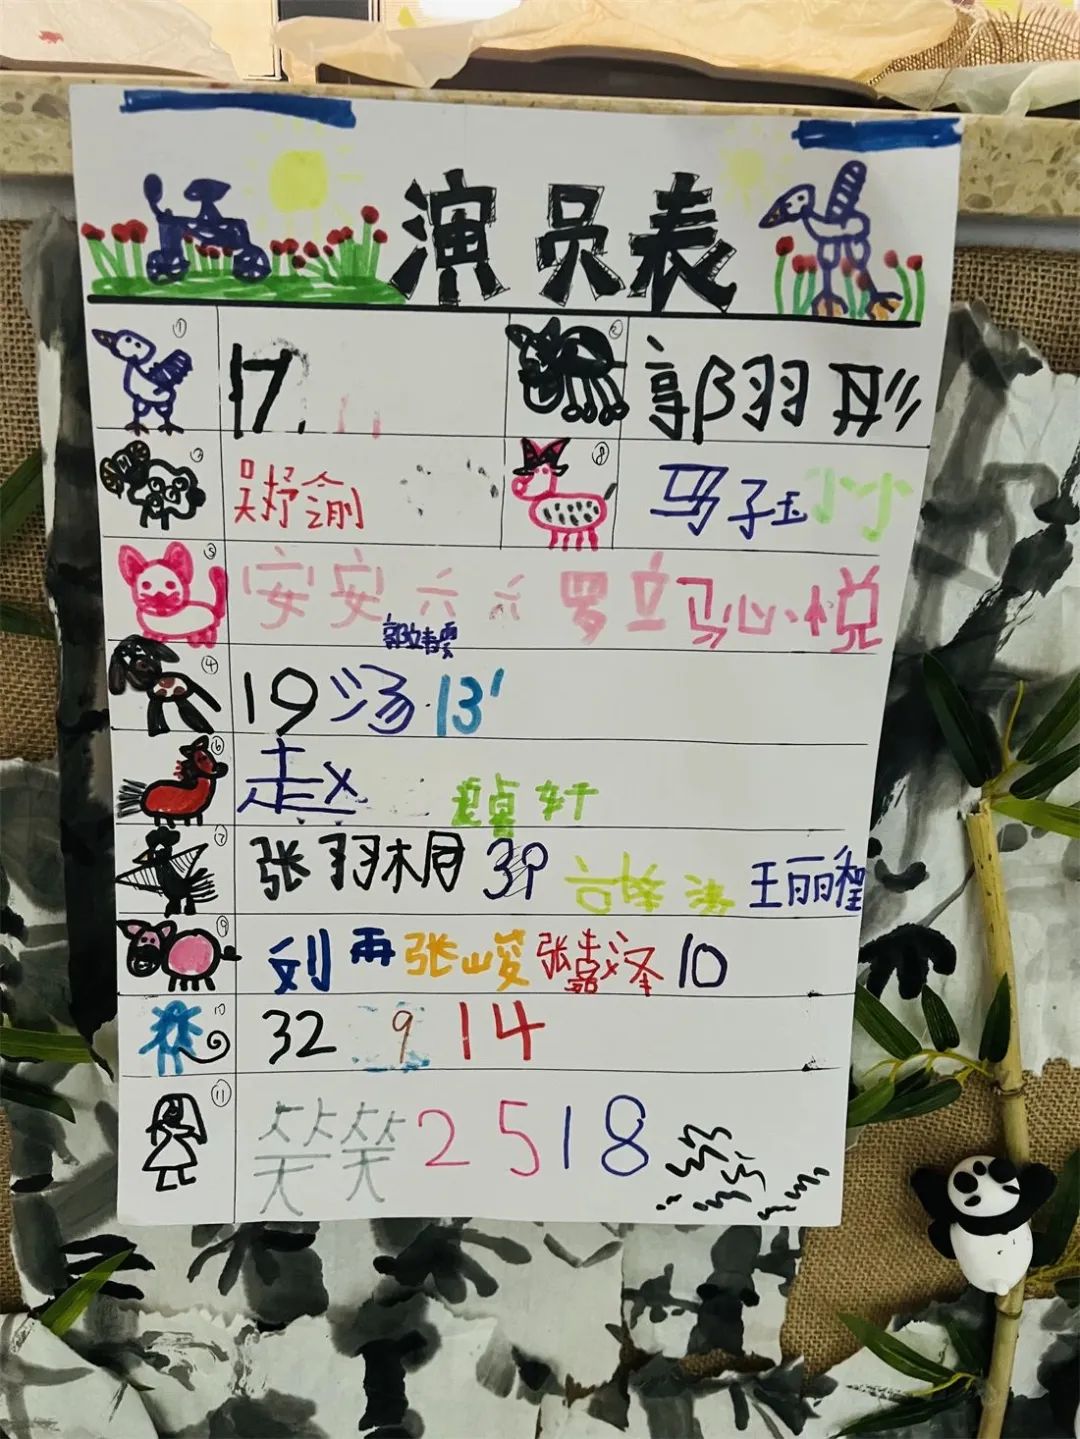 演员表
① 17 ② 郭羽彤
② 吴舒渝 ⑧ 马子玉 小小
③ 安安 六六 罗立 马心悦
④ 19 汤 13
⑥ 赵 卓轩
⑦ 张羽桐 39 王丽程
⑨ 刘再 张峻 张嘉泽 10
10 32 9 14
⑪ 笑笑 2 5 1 8